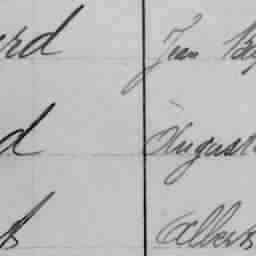 erd Jean Bap
d August
ts Albert